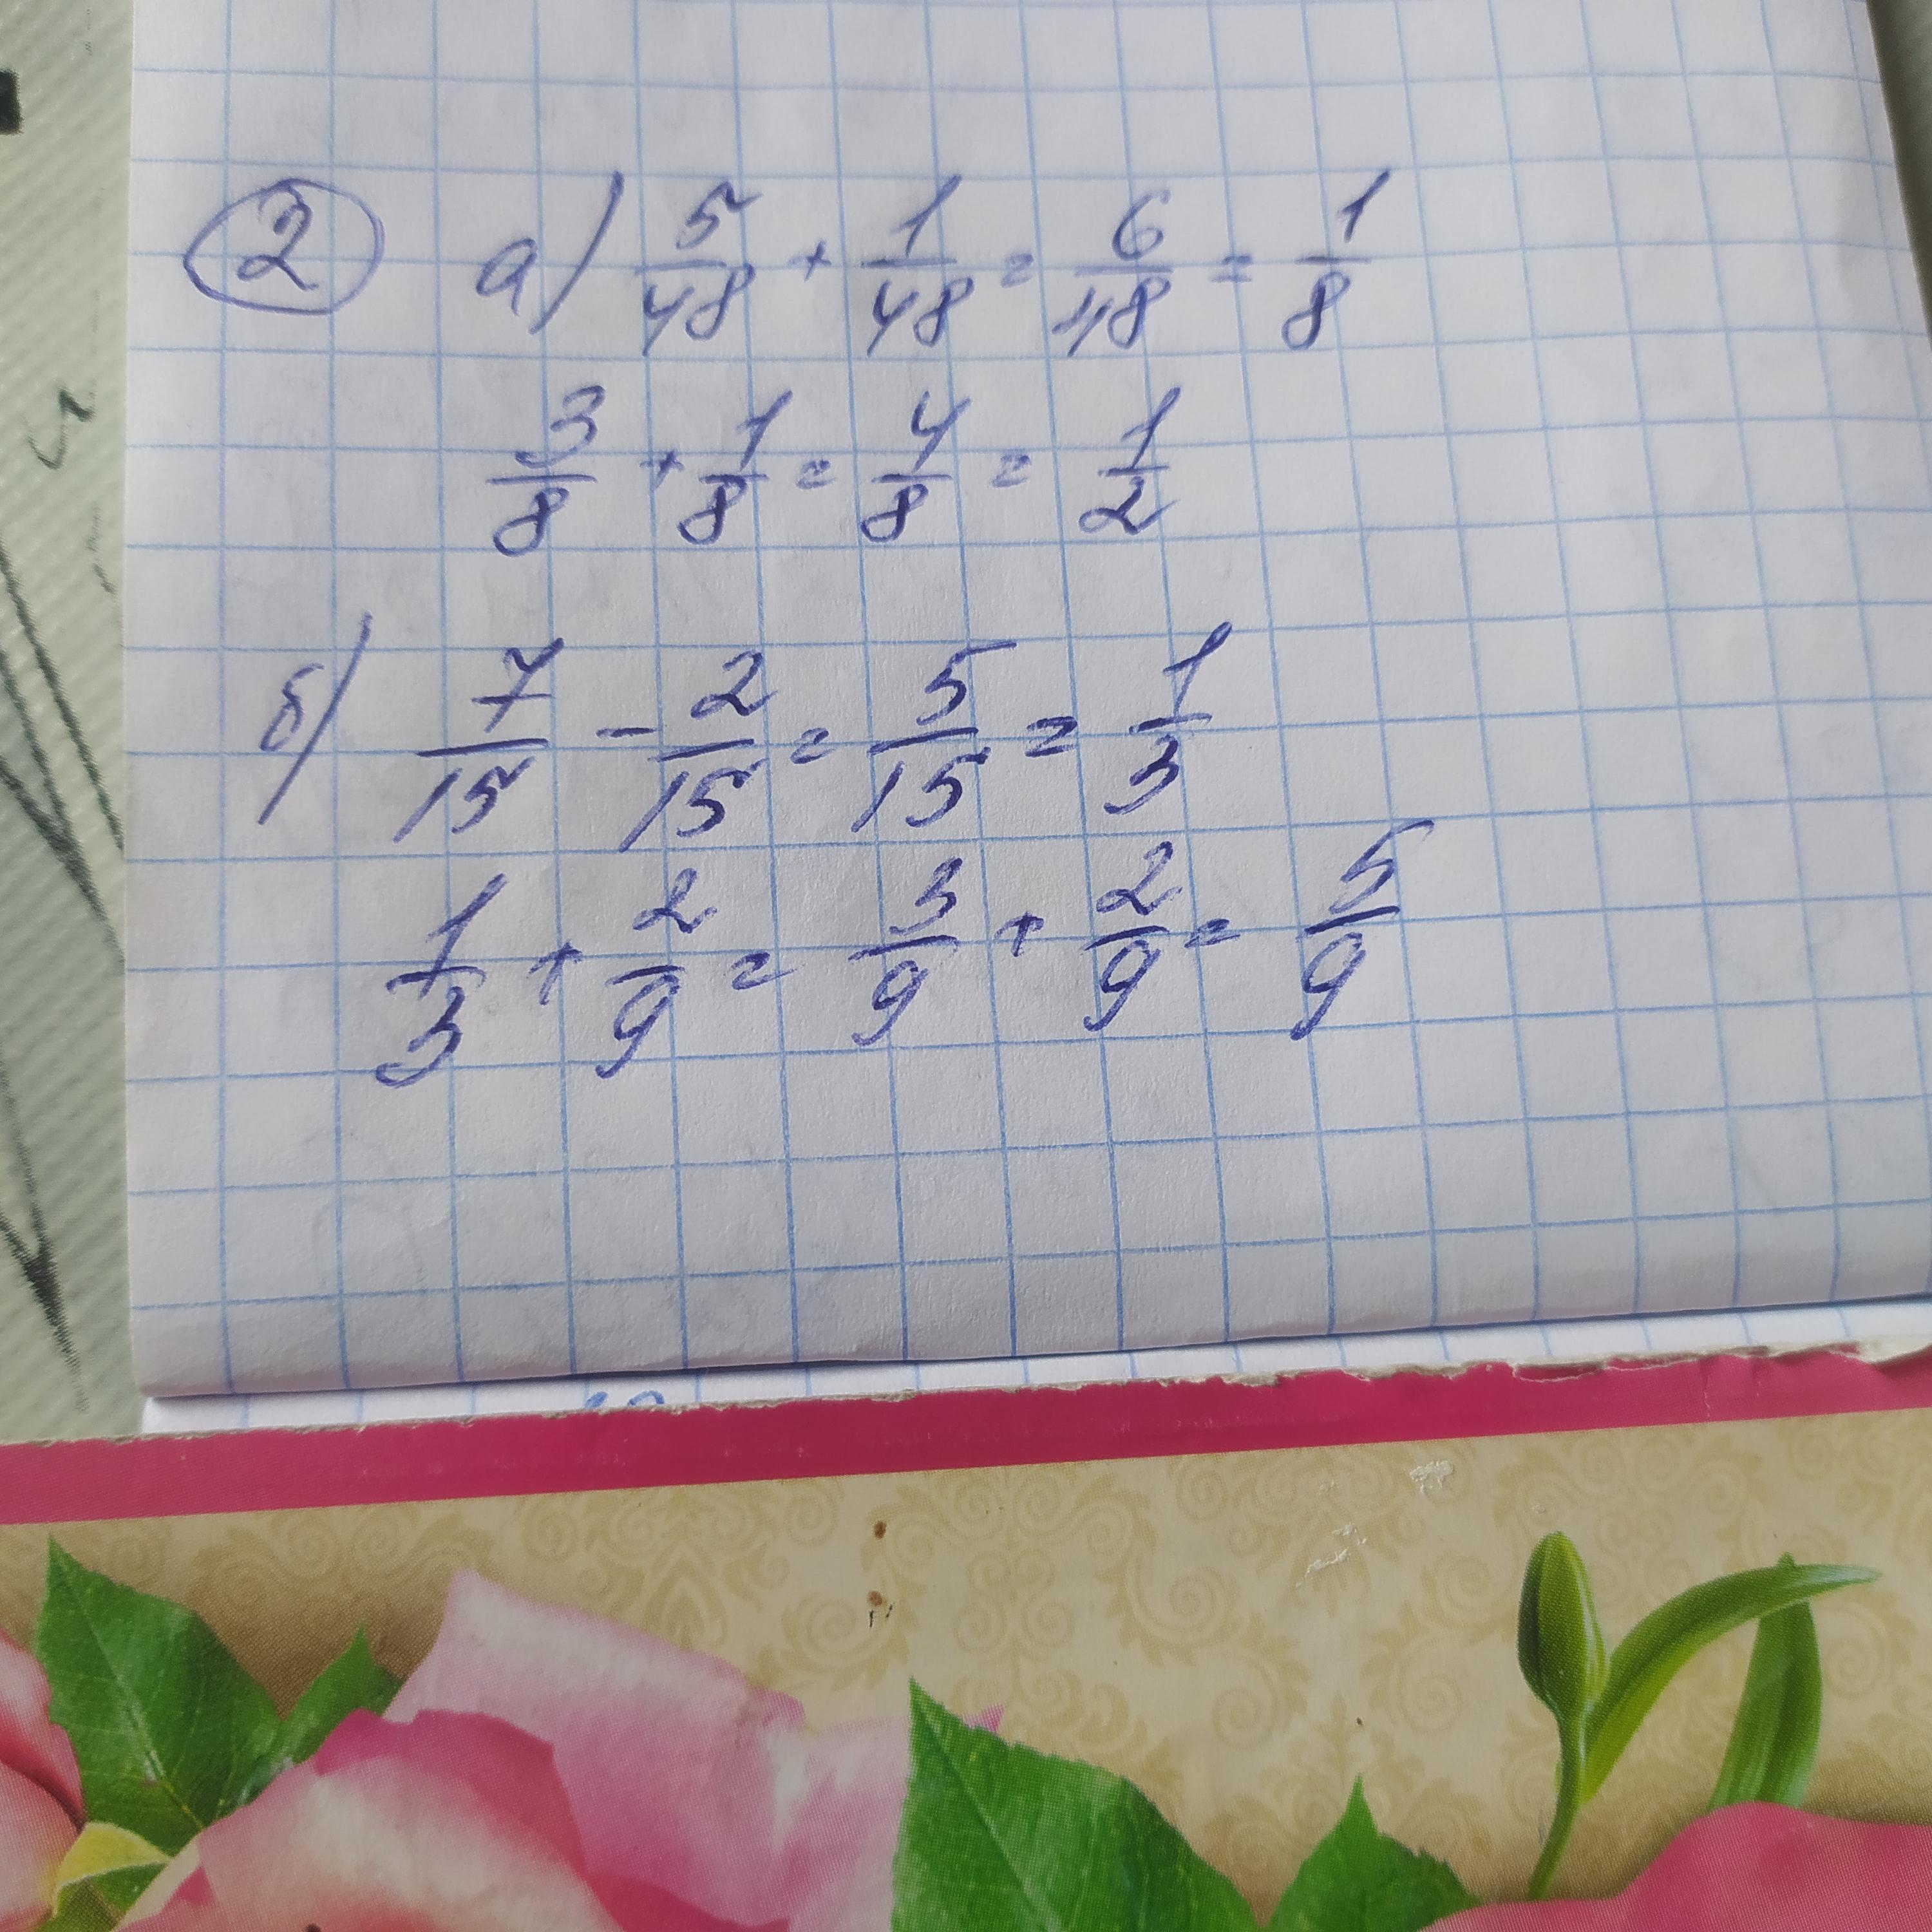 2 а) 5/48 + 1/48 = 6/48 = 1/8
3/8 + 1/8 = 4/8 = 1/2
б) 7/15 - 2/15 = 5/15 = 1/3
1/3 + 2/9 = 3/9 + 2/9 = 5/9